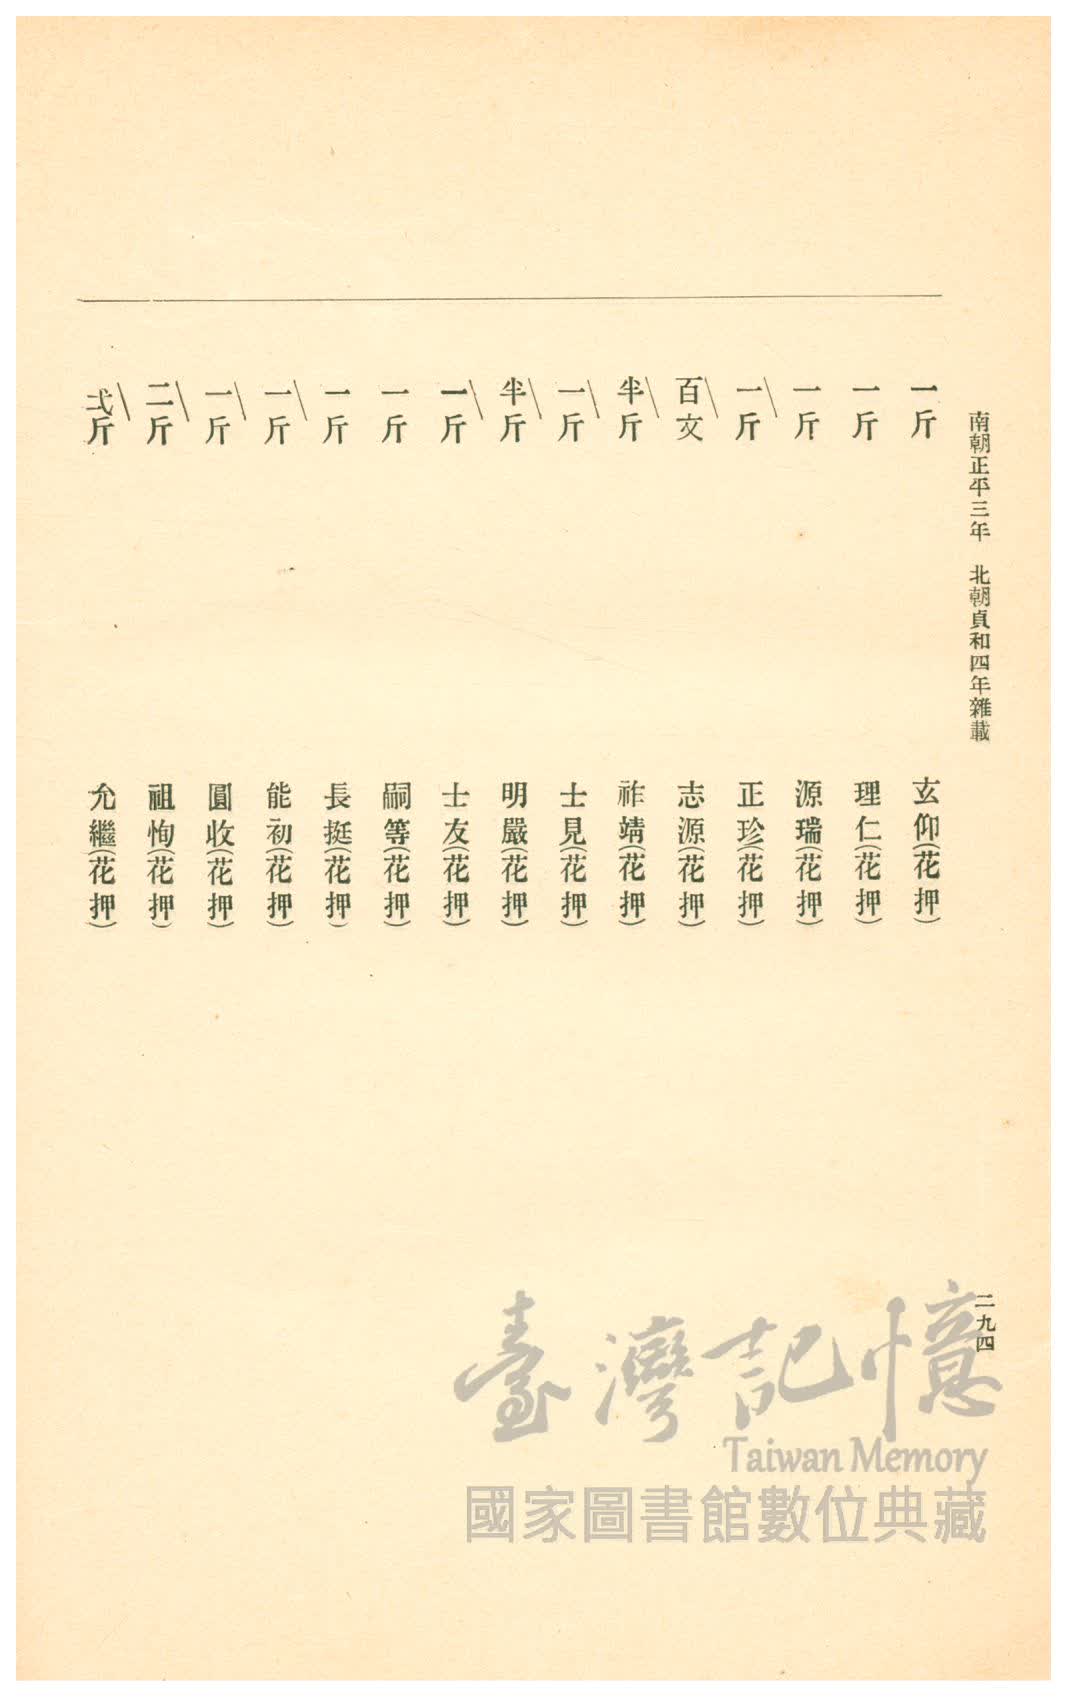 南朝正平三年　北朝貞和四年雜載
二九四
一斤　玄仰(花押)
一斤　理仁(花押)
一斤　源瑞(花押)
一斤　正珍(花押)
百文　志源(花押)
半斤　祚靖(花押)
一斤　士見(花押)
半斤　明嚴(花押)
一斤　士友(花押)
一斤　嗣等(花押)
一斤　長挺(花押)
一斤　能初(花押)
一斤　圓收(花押)
二斤　祖恂(花押)
弍斤　允繼(花押)
臺灣記憶
Taiwan Memory
國家圖書館數位典藏